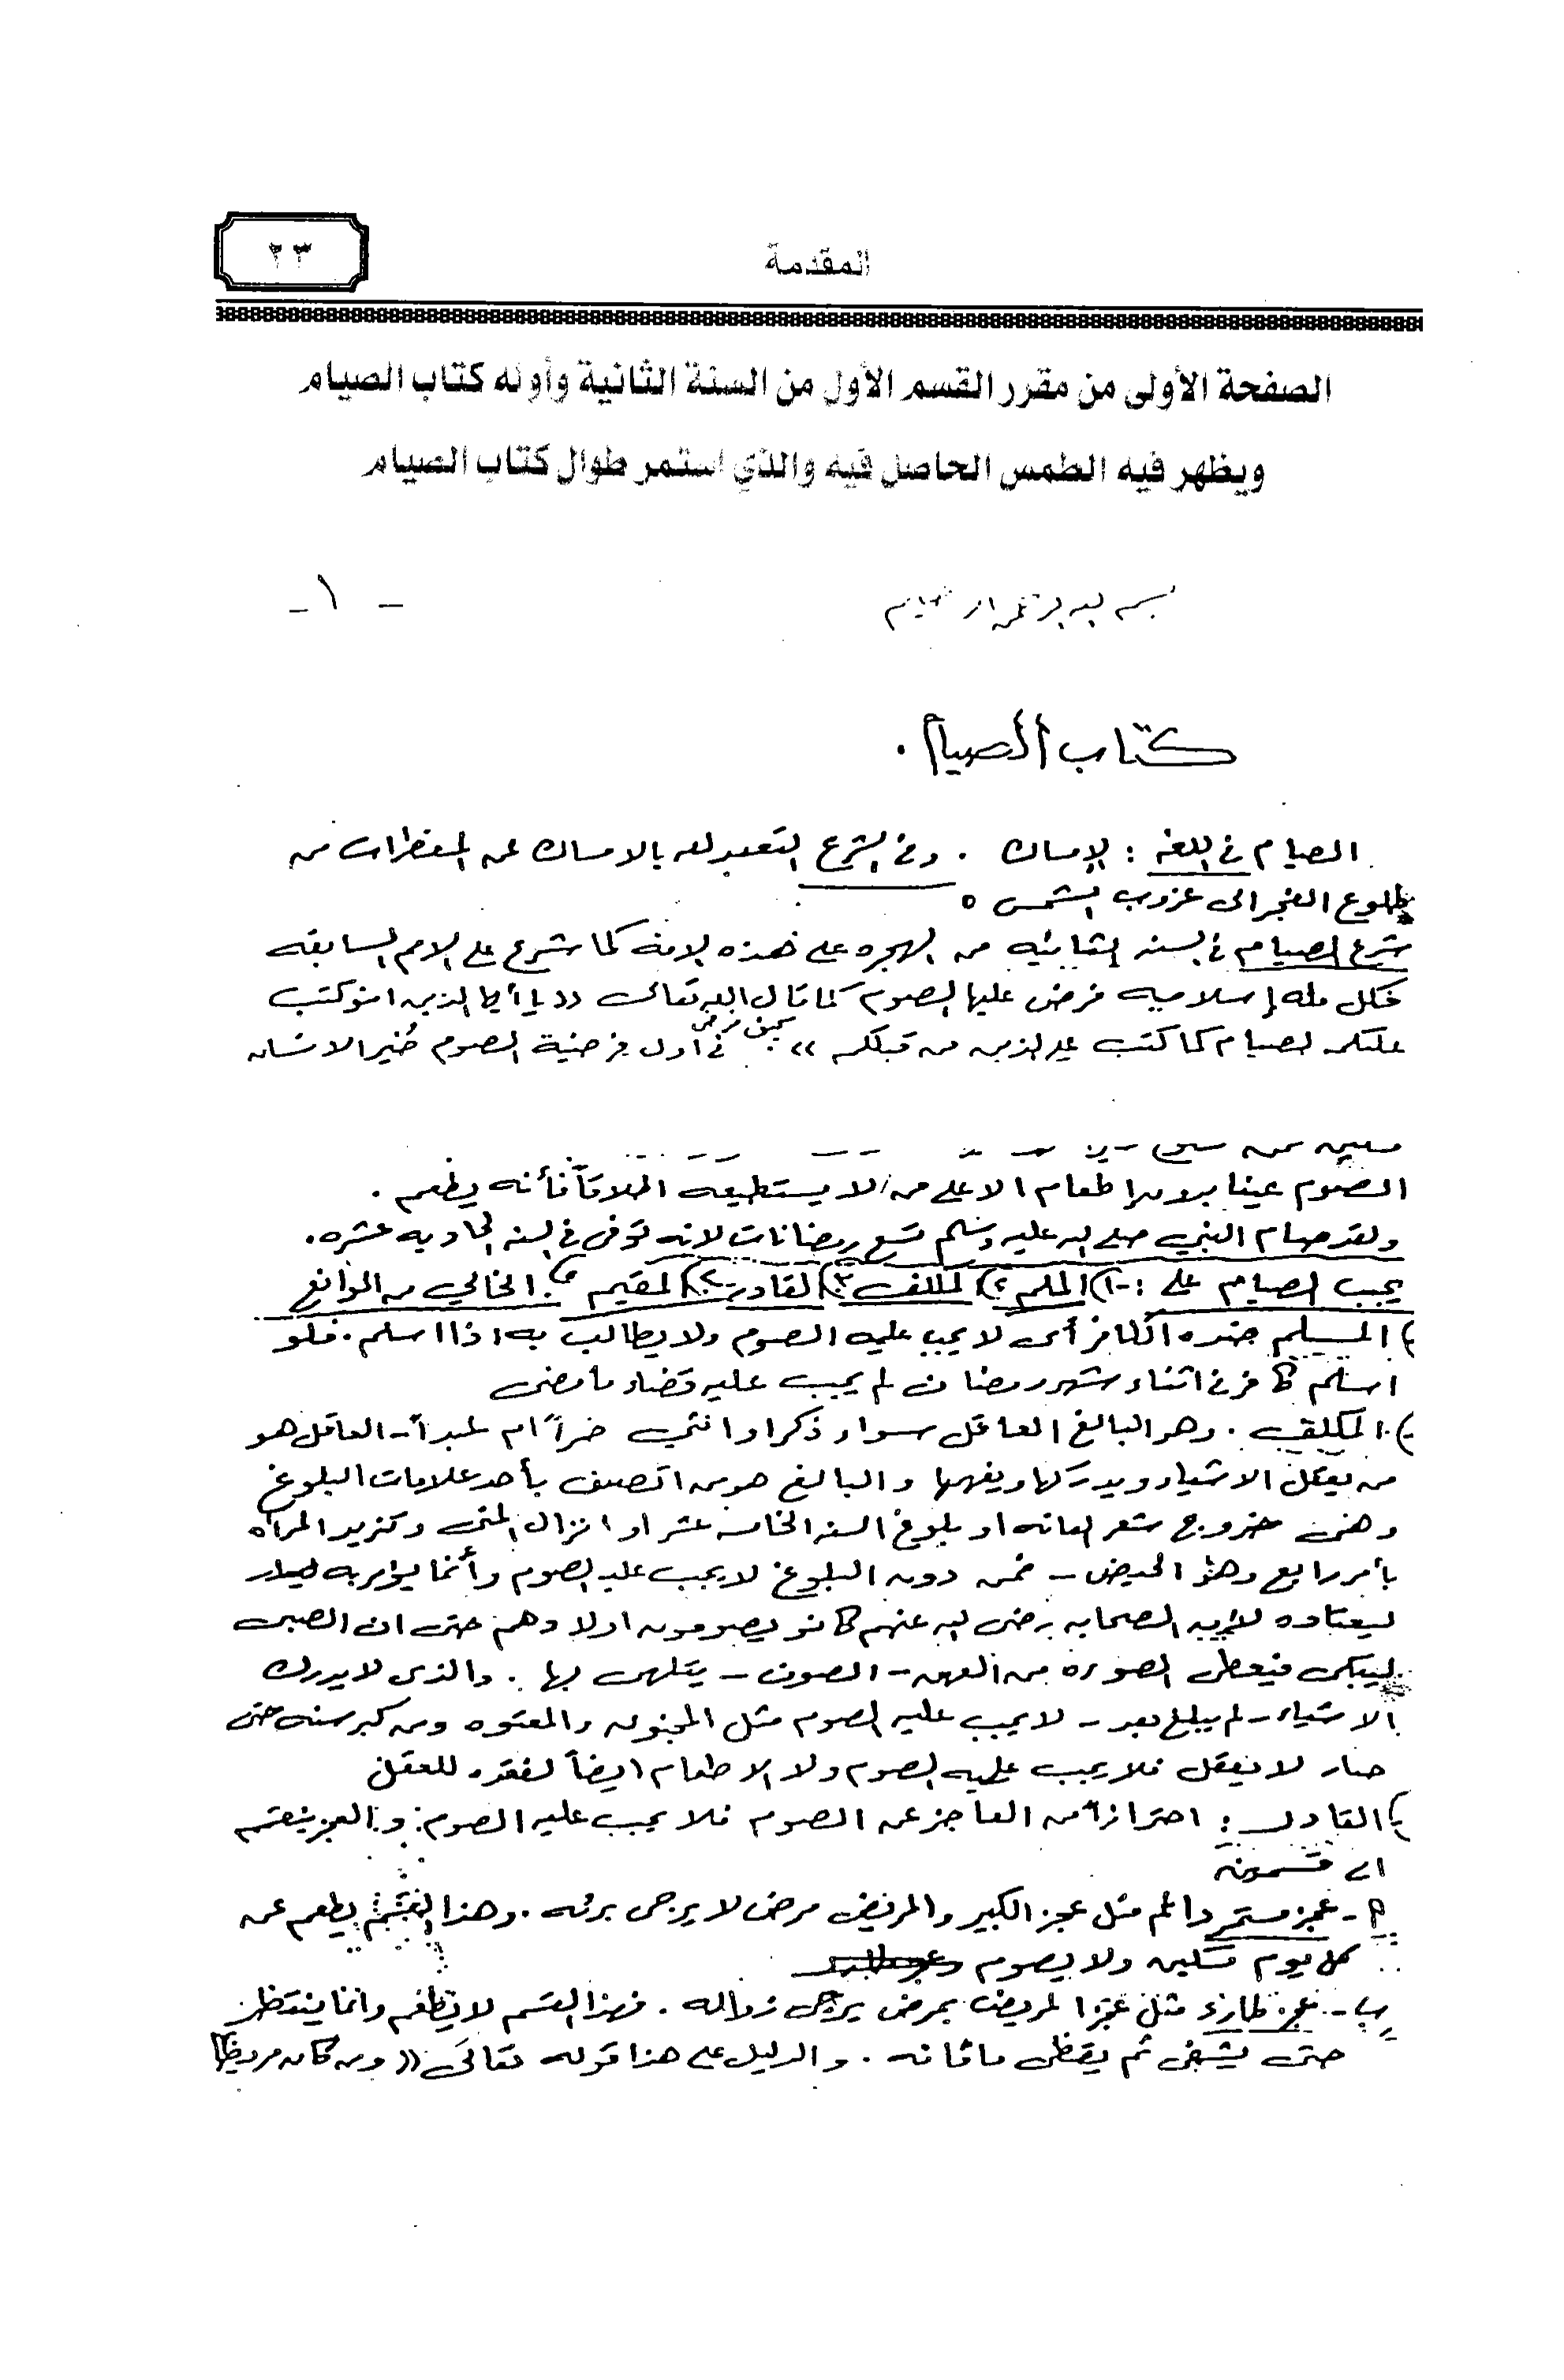 المقدمة
٢٣
الصفحة الأولى من مقرر القسم الأول من السنة الثانية وأوله كتاب الصيام
ويظهر فيه الطمس الحاصل فيه والذي استمر طوال كتاب الصيام
بسم الله الرحمن الرحيم
- ١ -
كتاب الصيام .
الصيام في اللغه : الإمساك . وفي الشرع التعبد لله بالامساك عن المفطرات من
طلوع الفجر الى غروب الشمس ٥
شرع الصيام في السنه الثانيه من الهجره على هذه الامة كما شرع على الامم السابقه
فكل مله إسلاميه فرض عليها الصوم كما قال الله تعالى (( يا أيها الذين امنو كتب
عليكم الصيام كما كتب على الذين من قبلكم )) في اول فرضية الصوم خُير الانسان
الصوم عينا الاطعام الا على من لا يستطيعه اطلاقاً فأنه يطعم .
ولقد صام النبي صلى الله عليه وسلم تسع رمضانات لانه توفى في السنه الحاديه عشره .
يجب الصيام على :- ١) المسلم ٢) المكلف ٣) القادر ٤) المقيم ٥) الخالي من الموانع
١) المسلم ضده الكافر أى لا يجب عليه الصوم ولا يطالب به اذا اسلم . فلو
اسلم كافر في اثناء شهر رمضان لم يجب عليه قضاء ما مضى
٢) المكلف . وهو البالغ العاقل سواء ذكرا او انثى حراً ام عبداً - العاقل هو
من يعقل الاشياء ويدركها ويفهمها والبالغ هو من اتصف بأحد علامات البلوغ
وهى خروج شعر العانه او بلوغ السنه الخامسه عشر او انزال المنى وتزيد المرأه
بأمر رابع وهو الحيض - فمن دون البلوغ لا يجب عليه الصوم وأنما يؤمر به
ليعتاده الصحابه رضى الله عنهم كانو يصومون اولادهم حتى ان الصبى
ليبكى فيعطى الصوره من العهن - الصوف - يتلهى بها . والذى لا يدرك
الاشياء - لم يبلغ بعد - لا يجب عليه الصوم مثل المجنون والمعتوه ومن كبر سنه حتى
صار لا يعقل فلا يجب عليه الصوم ولا الاطعام ايضاً لفقده للعقل
٣) القادر : احترازاً من العاجز عن الصوم فلا يجب عليه الصوم . والعجز ينقسم
الى قسمين
أ - عجز مستمر دائم مثل عجز الكبير والمريض مرض لا يرجى برئه . وهذا القسم يطعم عن
كل يوم مسكين ولا يصوم
ب - عجز طارئ مثل عجز المريض بمرض يرجى زواله . فهذا القسم لا يطعم وانما ينتظر
حتى يشفى ثم يقضى ما فاته . والدليل على هذا قوله تعالى (( ومن كان مريضا